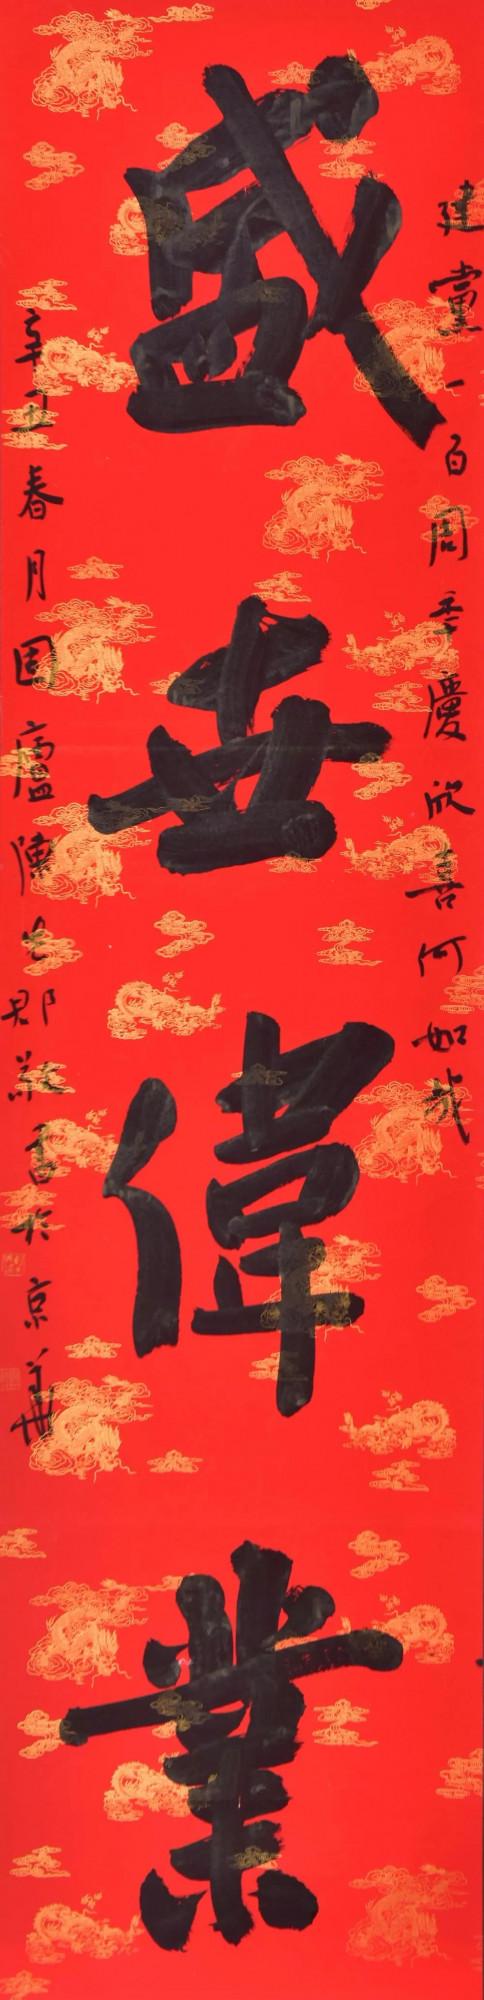 建黨一百周季慶欣喜何如哉
盛世偉業
辛丑春月固廬陳出郡敬書於京華